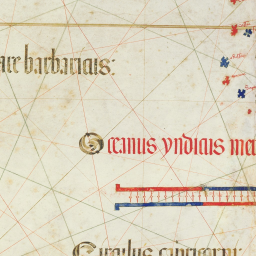 are barbaricus:
Oceanus yndicus me
Circulus capricorni